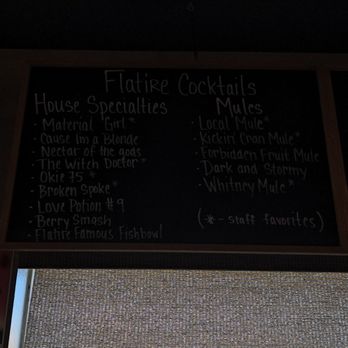 Flatire Cocktails
House Specialties
- Material Girl *
- Cause I'm a Blonde
- Nectar of the gods
- The Witch Doctor *
- Okie 75 *
- Broken Spoke *
- Love Potion #9
- Berry Smash
- Flatire Famous Fishbowl
Mules
- Local Mule *
- Kickin' Cran Mule *
- Forbidden Fruit Mule
- Dark and Stormy
- Whitney Mule *
(* - staff favorites)